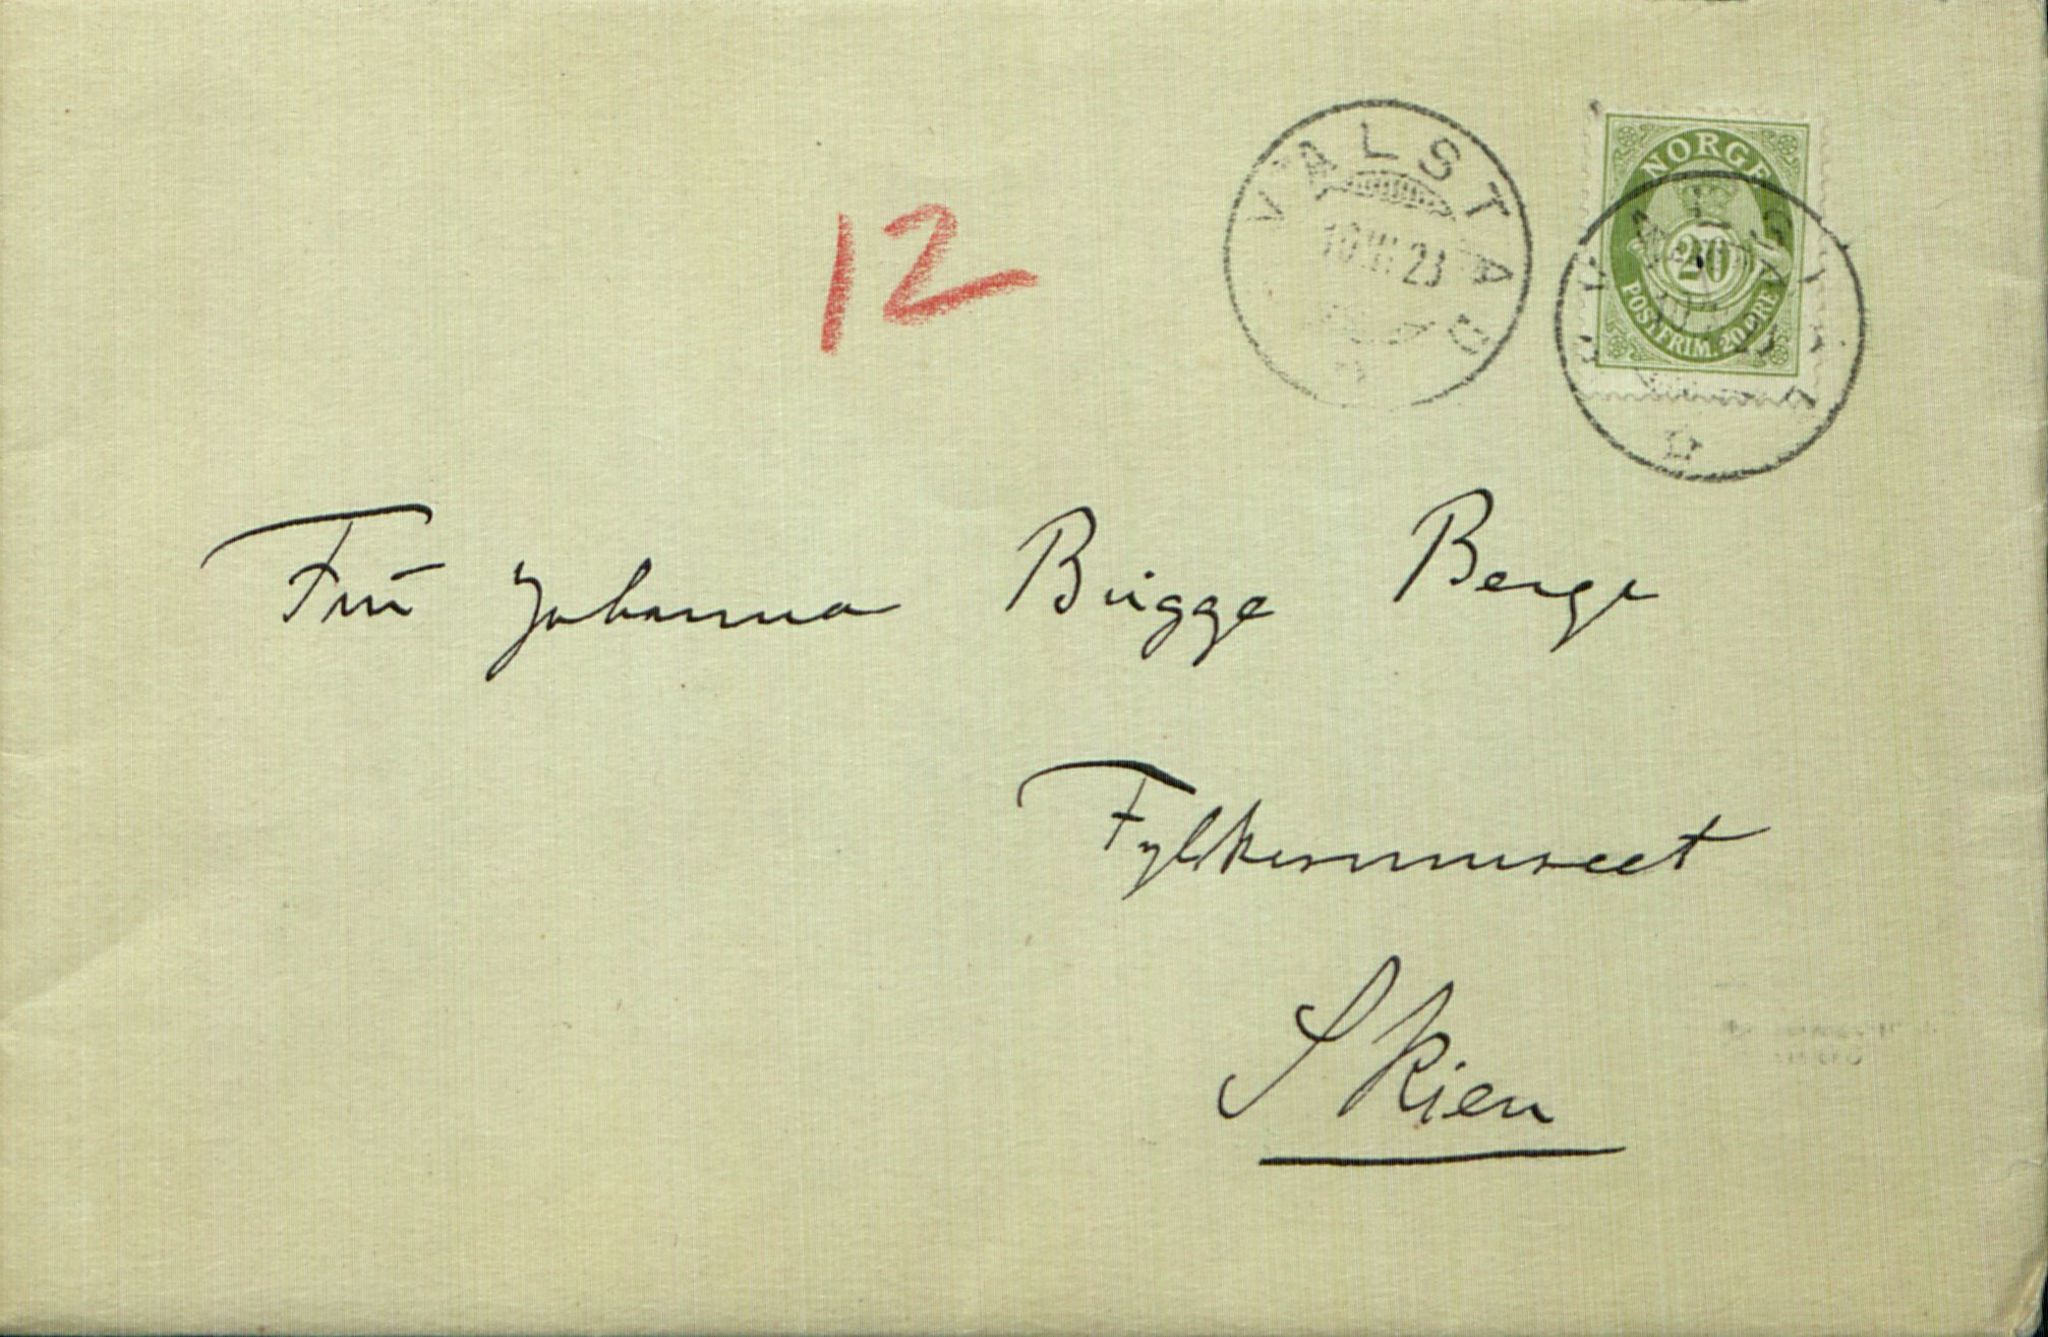 12
VALSTAD
10 III 23
NORGE
20
POSTFRIM. 20 ØRE
Frú Johanna Bugge Berge
Fylkesmuseet
Skien